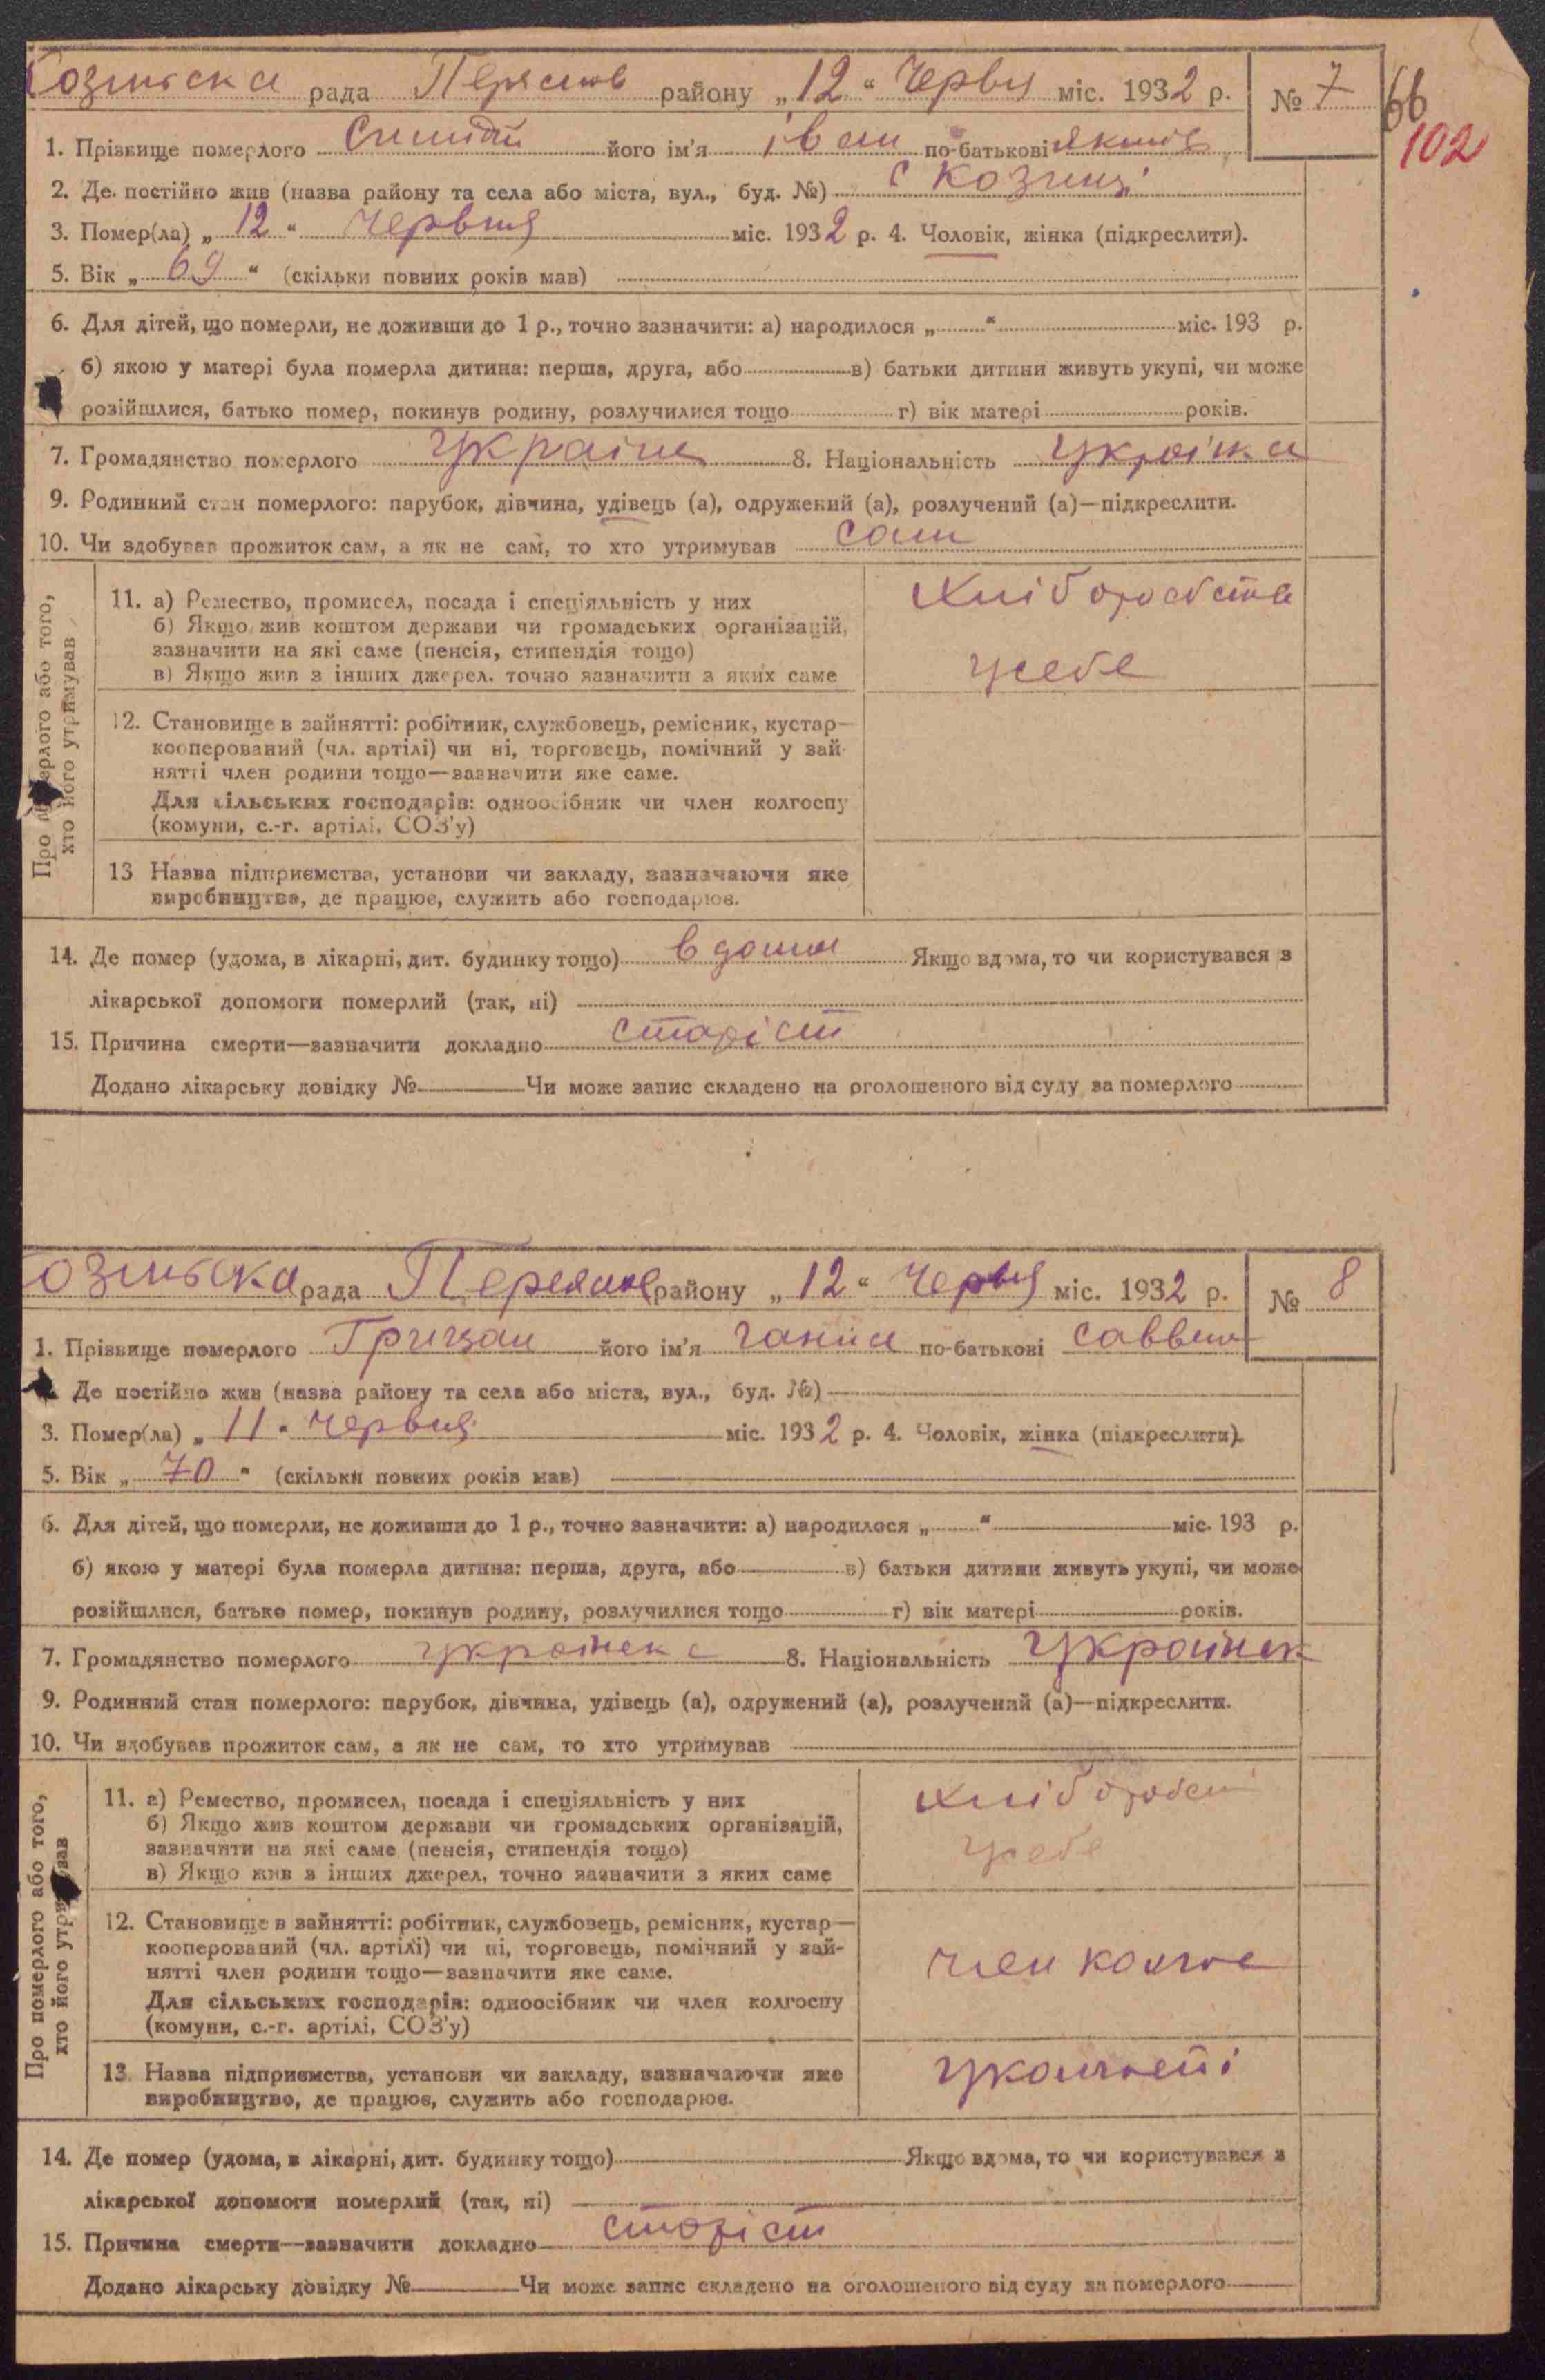 Козинська рада Переяслів району „12“ Червня міс. 1932 р. № 7
66
102
1. Прізвище померлого його ім'я іван по-батькові
2. Де постійно жив (назва району та села або міста, вул., буд. №) с Козинці
3. Помер(ла) „12“ червня міс. 1932 р. 4. Чоловік, жінка (підкреслити).
5. Вік „69“ (скільки повних років мав)
6. Для дітей, що померли, не доживши до 1 р., точно зазначити: а) народилося „ “ міс. 193 р.
б) якою у матері була померла дитина: перша, друга, або в) батьки дитини живуть укупі, чи може
розійшлися, батько помер, покинув родину, розлучилися тощо г) вік матері років.
7. Громадянство померлого 8. Національність
9. Родинний стан померлого: парубок, дівчина, удівець (а), одружений (а), розлучений (а)—підкреслити.
10. Чи здобував прожиток сам, а як не сам, то хто утримував сам
Про померлого або того,
хто його утримував
11. а) Ремество, промисел, посада і спеціяльність у них
б) Якщо жив коштом держави чи громадських організацій,
зазначити на які саме (пенсія, стипендія тощо)
в) Якщо жив з інших джерел, точно зазначити з яких саме
хліборобства
усебе
12. Становище в зайнятті: робітник, службовець, ремісник, кустар—
кооперований (чл. артілі) чи ні, торговець, помічний у зай-
нятті член родини тощо—зазначити яке саме.
Для сільських господарів: одноосібник чи член колгоспу
(комуни, с.-г. артілі, СОЗ'у)
13 Назва підприємства, установи чи закладу, зазначаючи яке
виробництво, де працює, служить або господарює.
14. Де помер (удома, в лікарні, дит. будинку тощо) в дома Якщо вдома, то чи користувався з
лікарської допомоги померлий (так, ні)
15. Причина смерти—зазначити докладно старіст
Додано лікарську довідку № Чи може запис складено на оголошеного від суду за померлого
Козинська рада Переяслів району „12“ Червня міс. 1932 р. № 8
1. Прізвище померлого Грицан його ім'я ганна по-батькові
Де постійно жив (назва району та села або міста, вул., буд. №)
3. Помер(ла) „11“ червня міс. 1932 р. 4. Чоловік, жінка (підкреслити).
5. Вік „70“ (скільки повних років мав)
6. Для дітей, що померли, не доживши до 1 р., точно зазначити: а) народилося „ “ міс. 193 р.
б) якою у матері була померла дитина: перша, друга, або в) батьки дитини живуть укупі, чи може
розійшлися, батько помер, покинув родину, розлучилися тощо г) вік матері років.
7. Громадянство померлого українка 8. Національність Українк
9. Родинний стан померлого: парубок, дівчина, удівець (а), одружений (а), розлучений (а)—підкреслити.
10. Чи здобував прожиток сам, а як не сам, то хто утримував
Про померлого або того,
хто його утримував
11. а) Ремество, промисел, посада і спеціяльність у них
б) Якщо жив коштом держави чи громадських організацій,
зазначити на які саме (пенсія, стипендія тощо)
в) Якщо жив з інших джерел, точно зазначити з яких саме
усебе
12. Становище в зайнятті: робітник, службовець, ремісник, кустар—
кооперований (чл. артілі) чи ні, торговець, помічний у зай-
нятті член родини тощо—зазначити яке саме.
Для сільських господарів: одноосібник чи член колгоспу
(комуни, с.-г. артілі, СОЗ'у)
член колгос
13. Назва підприємства, установи чи закладу, зазначаючи яке
виробництво, де працює, служить або господарює.
14. Де помер (удома, в лікарні, дит. будинку тощо) Якщо вдома, то чи користувався з
лікарської допомоги померлий (так, ні)
15. Причина смерти—зазначити докладно старіст
Додано лікарську довідку № Чи може запис складено на оголошеного від суду за померлого